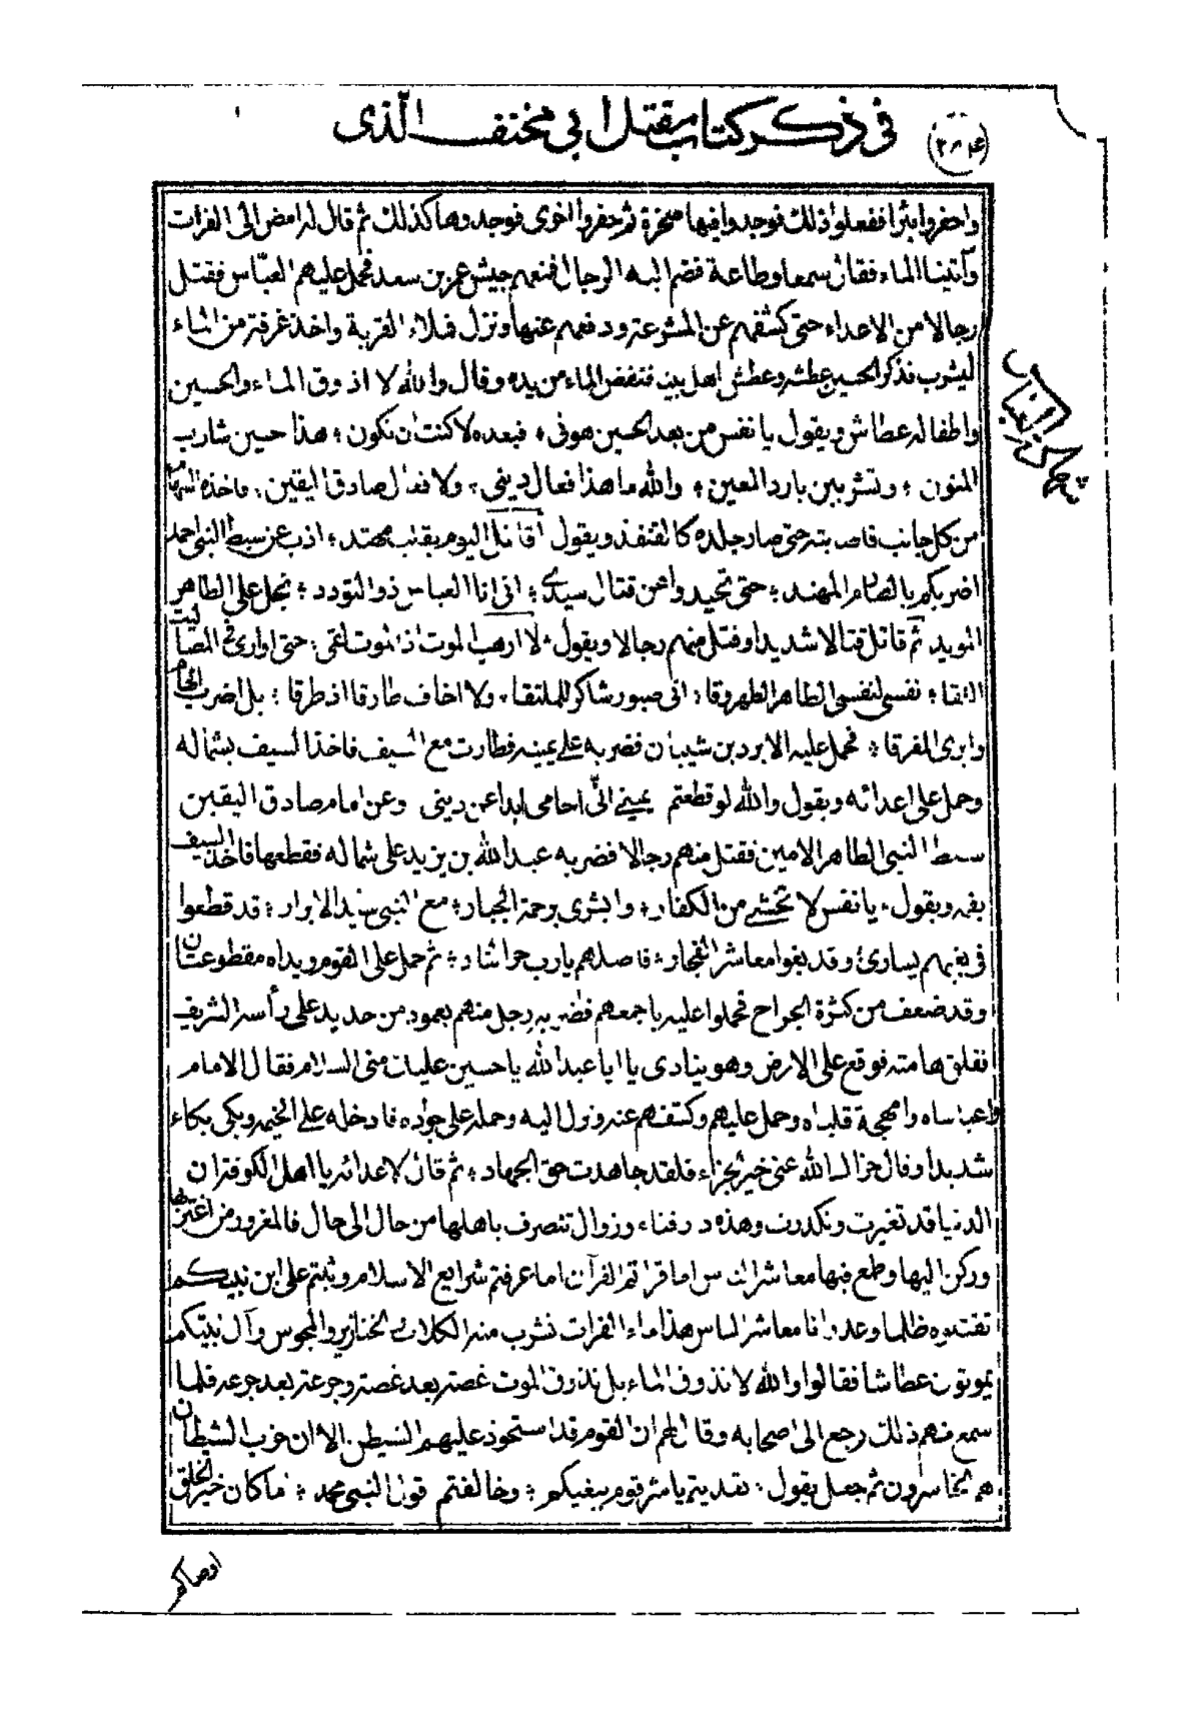 في ذكر كتاب مقتل ابي مخنف الّذى
(٣٨۴)
واحفروا بئرا ففعلوا ذلك فوجدوا فيها صخرة ثم حفروا اخرى فوجدوها كذلك ثم قال له امض الى الفرات
وآتينا الماء فقال سمعا وطاعة فضم اليه الرجال فمنعهم جيش عمر بن سعد فحمل عليهم العبّاس فقتل
رجالا من الاعداء حتى كشفهم عن المشرعة ودفعهم عنها ونزل فملاء القربة واخذ غرفة من الماء
ليشرب فذكر الحسين عطشه وعطش اهل بيته فنفض الماء من يده وقال والله لا اذوق الماء والحسين
واطفاله عطاش ويقول يا نفس من بعد الحسين هونى ؛ فبعده لا كنت ان تكون ؛ هذا حسين شارب
المنون ؛ وتشربين بارد المعين ؛ والله ما هذا فعال ديني ؛ ولا فعال صادق اليقين ؛ فاخذه السهام
من كل جانب فاصابته حتى صار جلده كالقنفذ ويقول أقاتل اليوم بقلب مهتد ؛ اذب عن سبط النبي احمد
اضربكم بالصارم المهند ؛ حتى تحيدوا عن قتال سيدي ؛ انى انا العباس ذو التودد ؛ نجل على الطاهر
المويد ثم قاتل قتالا شديدا وقتل منهم رجالا ويقول ؛ لا ارهب الموت اذ الموت لقى ؛ حتى اوارى في المصاليت
اللقا ؛ نفسى لنفسى الطاهر الطهر وقا ؛ انى صبور شاكر للملتقا ؛ ولا اخاف طارقا اذ طرقا ؛ بل اضرب الهام
وابرى المفرقا ؛ فحمل عليه الابرد بن شيبان فضربه على يمينه فطارت مع السيف فاخذ السيف بشماله
وحمل على اعدائه ويقول والله لو قطعتم يميني انّي احامى ابدا عن ديني وعن امام صادق اليقين
سبط النبي الطاهر الامين فقتل منهم رجالا فضربه عبد الله بن يزيد على شماله فقطعها فاخذ السيف
بفمه ويقول ؛ يا نفس لا تخشى من الكفار ؛ وابشرى برحمة الجبار ؛ مع النبي سيد الابرار ؛ قد قطعوا
في بغيهم يسارى ؛ وقد بغوا معاشر الفجار ؛ فاصلهم يا رب حر النار ؛ ثم حمل على القوم ويداه مقطوعتان
وقد ضعف من كثرة الجراح فحملوا عليه باجمعهم فضربه رجل منهم بعمود من حديد على رأسه الشريف
ففلق هامته فوقع على الارض وهو ينادى يا ابا عبد الله يا حسين عليك منى السلام فقال الامام
واعباساه وامهجة قلباه وحمل عليهم وكشفهم عنه ونزل اليه وحمله على جواده فادخله على الخيمة وبكى بكاء
شديدا وقال جزاك الله عنى خير الجزاء فلقد جاهدت حق الجهاد ؛ ثم قال لاعدائه يا اهل الكوفة ان
الدنيا قد تغيرت وتكدرت وهذه دار فناء وزوال تتصرف باهلها من حال الى حال فالمغرور من اغتر بها
وركن اليها وطمع فيها معاشر الناس اما قراتم القرآن اما عرفتم شرايع الاسلام وثبتم على ابن نبيكم
تقتلوه ظلما وعدوانا معاشر الناس هذا ماء الفرات تشرب منه الكلاب والخنازير والمجوس وآل نبيكم
يموتون عطاشا فقالوا والله لا تذوق الماء بل تذوق الموت غصة بعد غصة وجرعة بعد جرعة فلما
سمع منهم ذلك رجع الى اصحابه وقال لهم ان القوم قد استحوذ عليهم الشيطن الا ان حزب الشيطان
هم الخاسرون ثم جعل يقول ؛ تعديتم يا شر قوم ببغيكم ؛ وخالفتم قول النبي محمد ؛ اما كان خير الخلق
اوصاكم